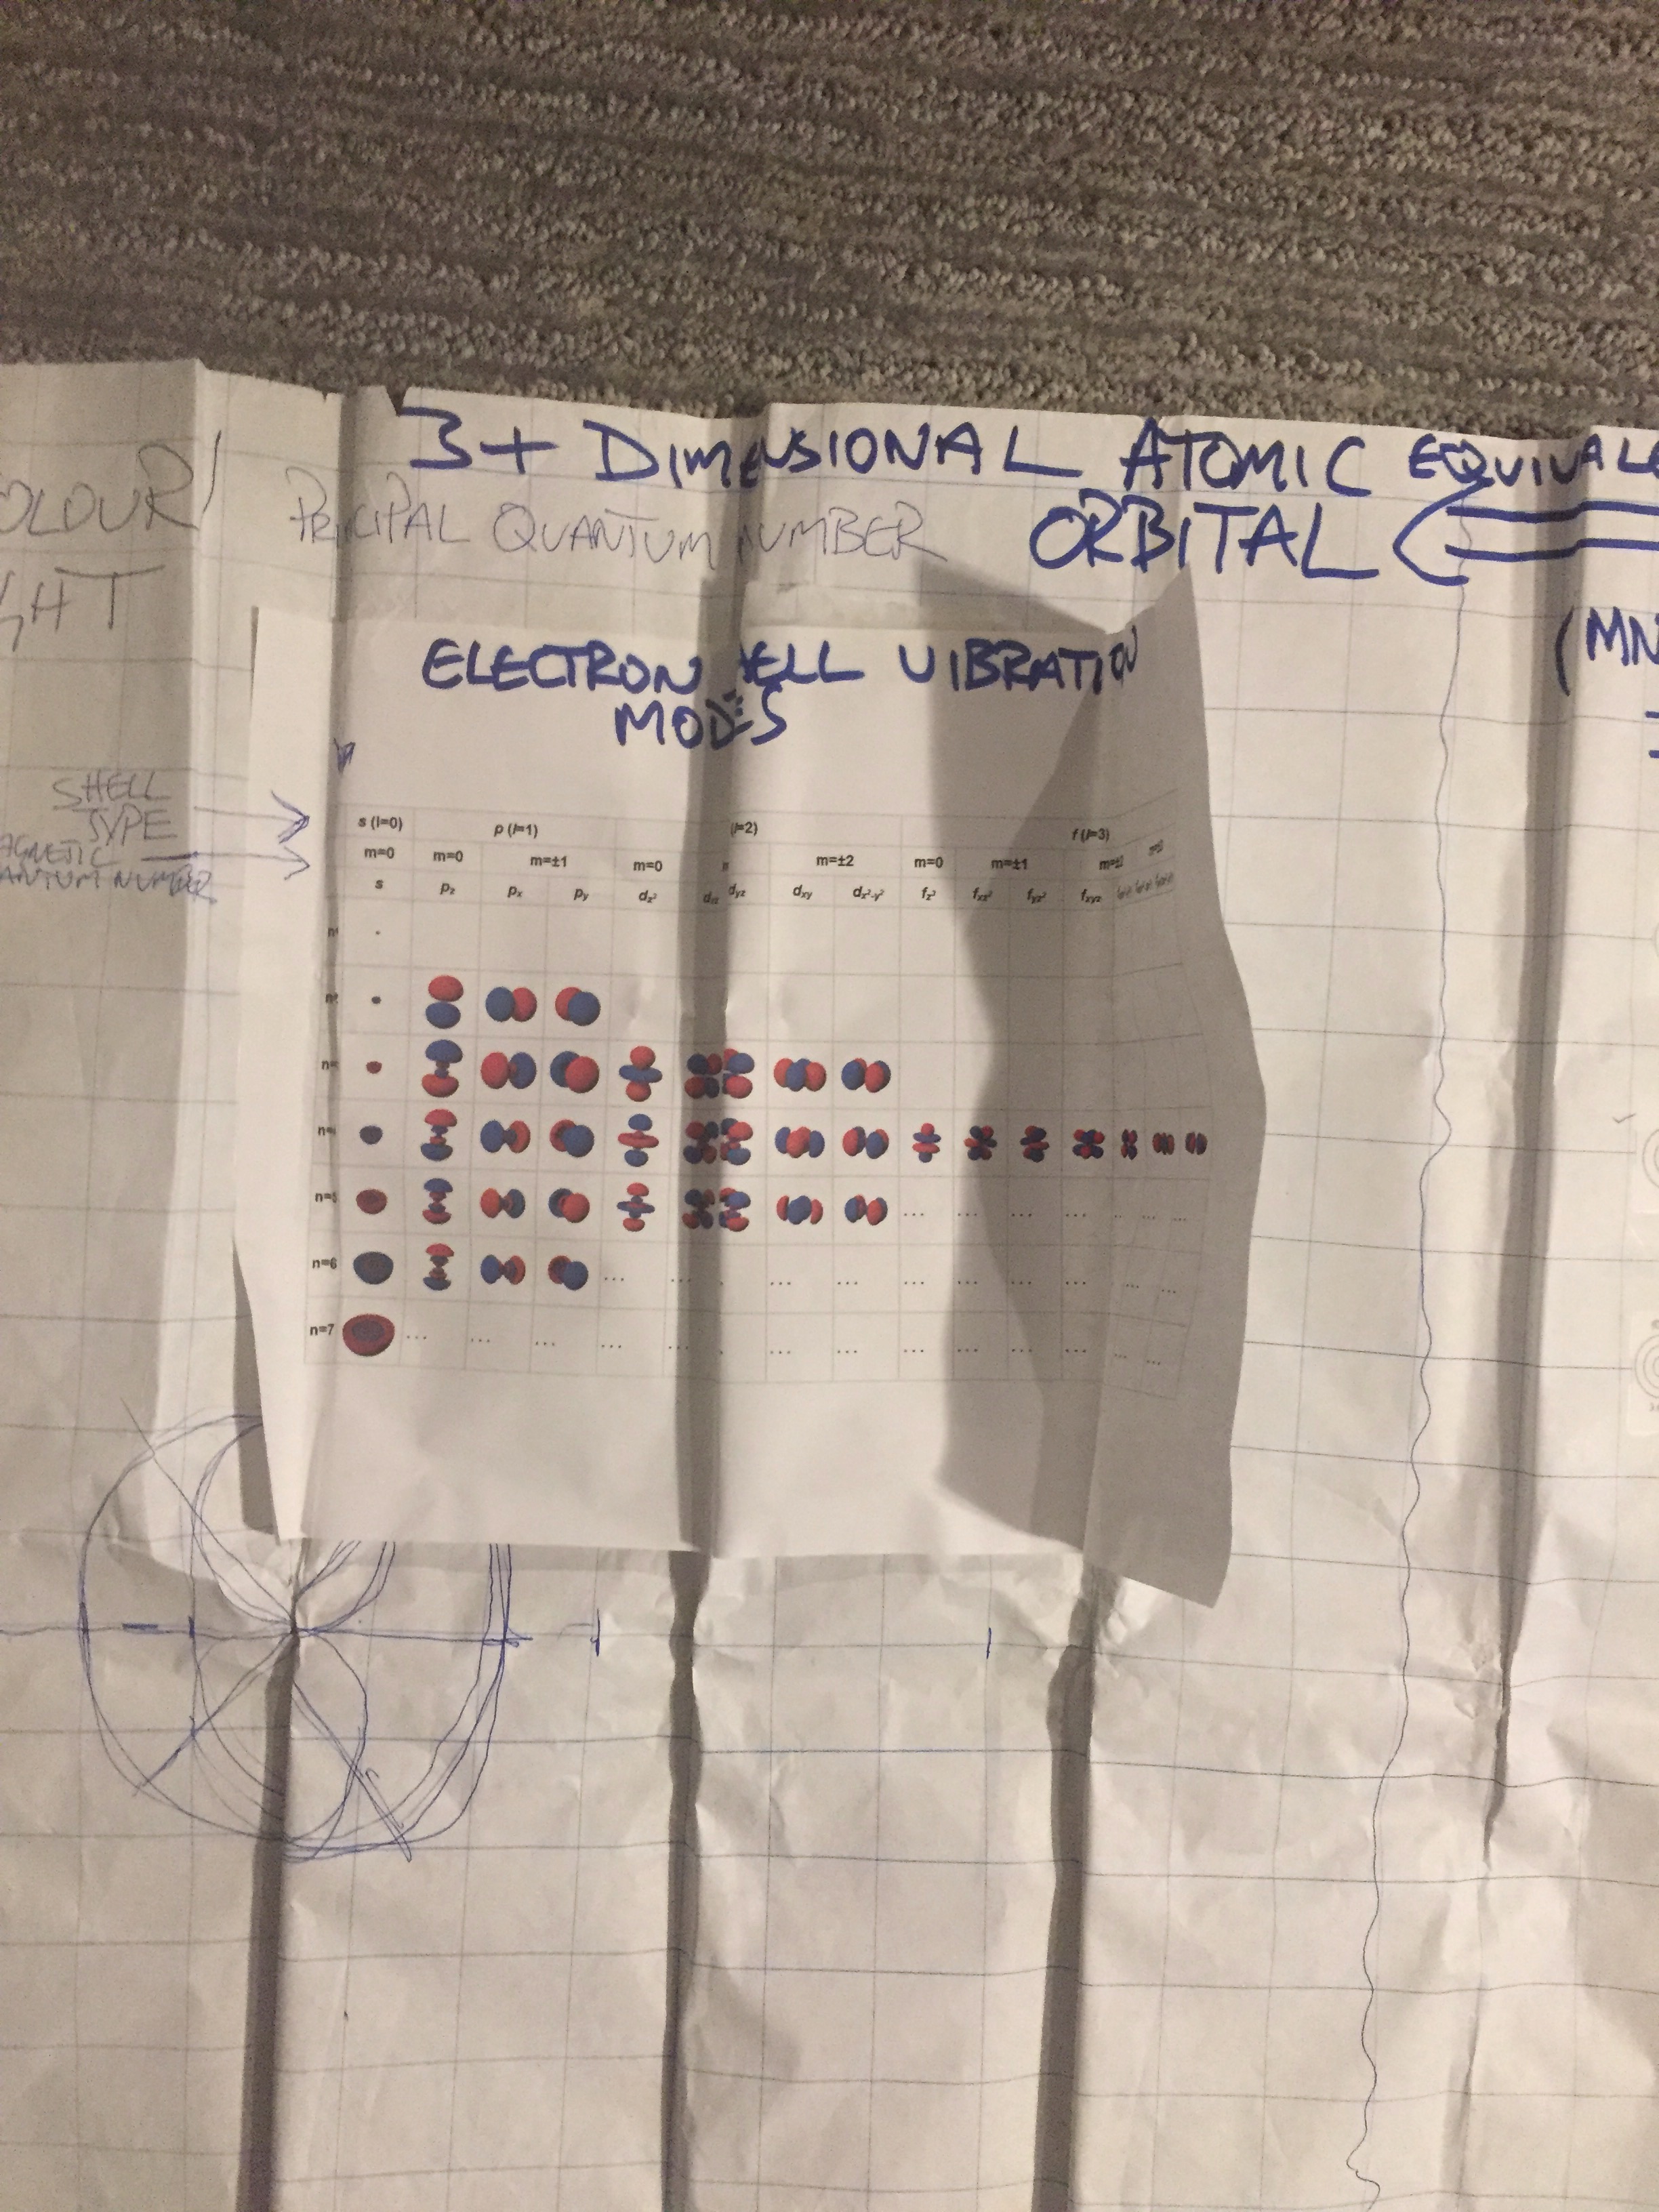 3+ DIMENSIONAL ATOMIC EQUIVALE
OLOUR/ PRICIPAL QUANTUM NUMBER ORBITAL
GHT
(MN
ELECTRON ELL VIBRATION
MODES
SHELL
TYPE
AGNETIC
ANTUM NUMBER
s (l=0) p (l=1) (l=2) f (l=3)
m=0 m=0 m=±1 m=0 m=±2 m=0 m=±1 m=±2
s pz px py dz² dxz dyz dxy dx²-y² fz³ fxz² fyz² fxyz
n=
n=5 ... ... ... ... ... ... ...
n=6 ... ... ... ... ... ... ... ... ... ...
n=7 ... ... ... ... ... ... ... ... ... ... ... ...